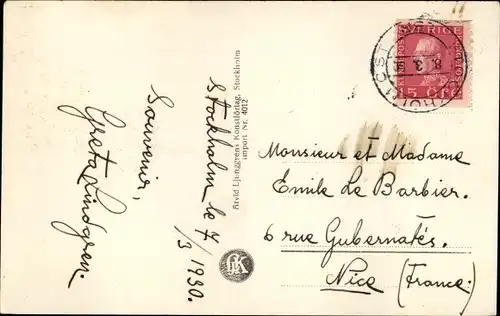 Stockholm le 7/3 1930.
Souvenir,
Greta Lindgren.
Arvid Ljunggrens Konstförlag, Stockholm
import Nr. 4012
SVERIGE
15 ÖRE
8.3
Monsieur et Madame
Emile Le Barbier.
6 rue Gubernatés.
Nice (France.)